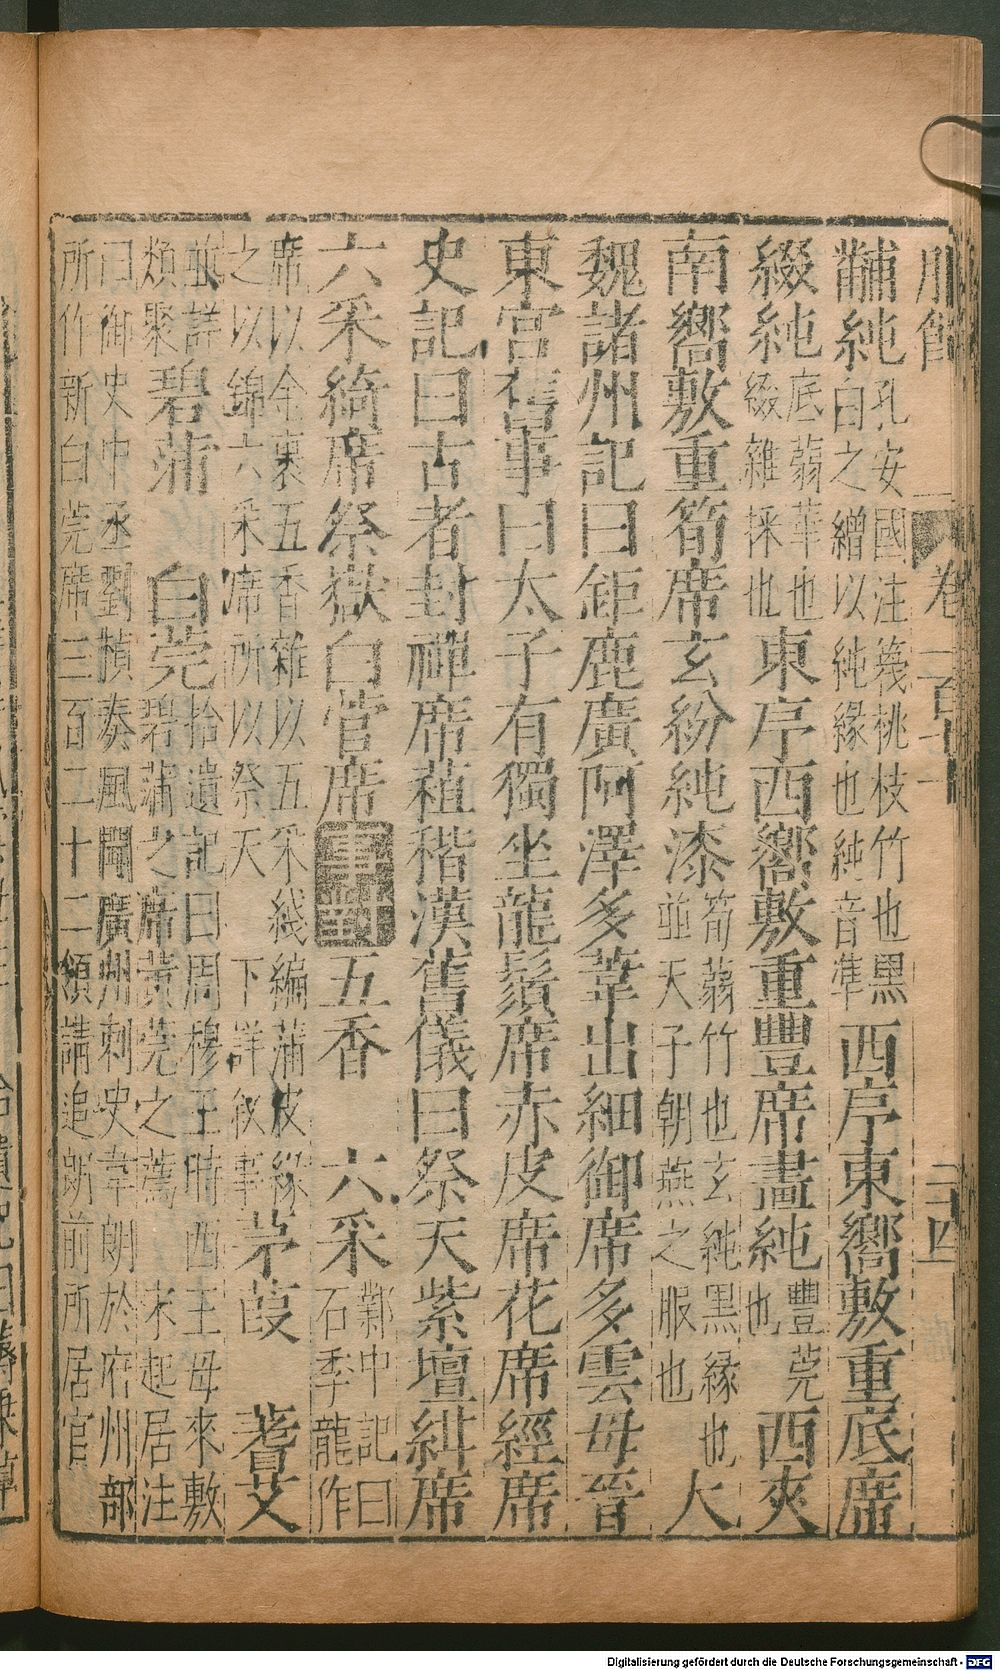 服飾 卷一百七十
黼純孔安國注篾桃枝竹也黑白之繒以純緣也純音準西序東嚮敷重底席
綴純底蒻華也綴雜採也東序西嚮敷重豐席畫純豐莞也西夾
南嚮敷重筍席玄紛純漆筍蒻竹也玄純黑緣也並天子朝燕之服也大
魏諸州記曰鉅鹿廣阿澤多葦出細御席多雲母晉
東宮舊事曰太子有獨坐龍鬚席赤皮席花席經席
史記曰古者封禪席葅稭漢舊儀曰祭天紫壇紺席
六采綺席祭嶽白菅席事對五香 六采鄴中記曰石季龍作
席以金裹五香雜以五采綫編蒲皮緣之以錦六采席所以祭天 下詳敘事茅葭 蓍艾
並詳類聚碧蒲 白莞拾遺記曰周穆王時西王母來敷碧蒲之席黃莞之薦 宋起居注
曰御史中丞劉楨奏風聞廣州刺史韋朗於府州部所作新白莞席三百二十二領請追朗前所居官
Digitalisierung gefördert durch die Deutsche Forschungsgemeinschaft - DFG